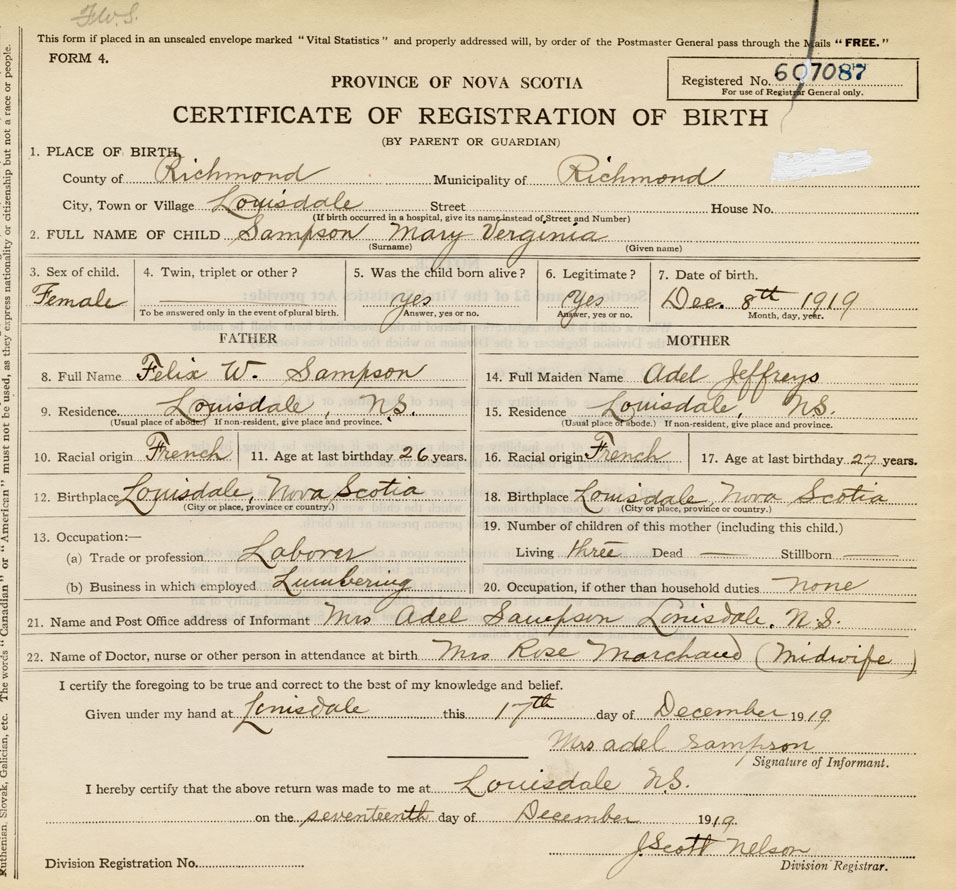 F.W.S.
This form if placed in an unsealed envelope marked "Vital Statistics" and properly addressed will, by order of the Postmaster General pass through the Mails "FREE."
FORM 4.
PROVINCE OF NOVA SCOTIA
Registered No. 607087
For use of Registrar General only.
CERTIFICATE OF REGISTRATION OF BIRTH
(BY PARENT OR GUARDIAN)
1. PLACE OF BIRTH,
County of Richmond Municipality of Richmond
City, Town or Village Louisdale Street House No.
(If birth occurred in a hospital, give its name instead of Street and Number)
2. FULL NAME OF CHILD Sampson Mary Verginia
(Surname) (Given name)
3. Sex of child. 4. Twin, triplet or other? 5. Was the child born alive? 6. Legitimate? 7. Date of birth.
Female yes Yes Dec. 8th 1919
To be answered only in the event of plural birth. Answer, yes or no. Answer, yes or no. Month, day, year.
FATHER MOTHER
8. Full Name Felix W. Sampson 14. Full Maiden Name Adel Jeffreys
9. Residence. Louisdale, N.S. 15. Residence Louisdale, N.S.
(Usual place of abode.) If non-resident, give place and province. (Usual place of abode.) If non-resident, give place and province.
10. Racial origin French 11. Age at last birthday 26 years. 16. Racial origin French 17. Age at last birthday 27 years.
12. Birthplace Louisdale, Nova Scotia 18. Birthplace Louisdale, Nova Scotia
(City or place, province or country.) (City or place, province or country.)
13. Occupation:— 19. Number of children of this mother (including this child.)
(a) Trade or profession Laborer Living three Dead — Stillborn —
(b) Business in which employed Lumbering 20. Occupation, if other than household duties none
21. Name and Post Office address of Informant Mrs Adel Sampson Louisdale. N.S.
22. Name of Doctor, nurse or other person in attendance at birth Mrs. Rose Marchand (Midwife)
I certify the foregoing to be true and correct to the best of my knowledge and belief.
Given under my hand at Louisdale this 17th day of December 1919
Mrs adel Sampson
Signature of Informant.
I hereby certify that the above return was made to me at Louisdale N.S.
on the seventeenth day of December 1919.
J. Scott Nelson
Division Registration No. Division Registrar.
Ruthenian, Slovak, Galician, etc. The words "Canadian" or "American" must not be used, as they express nationality or citizenship but not a race or people.